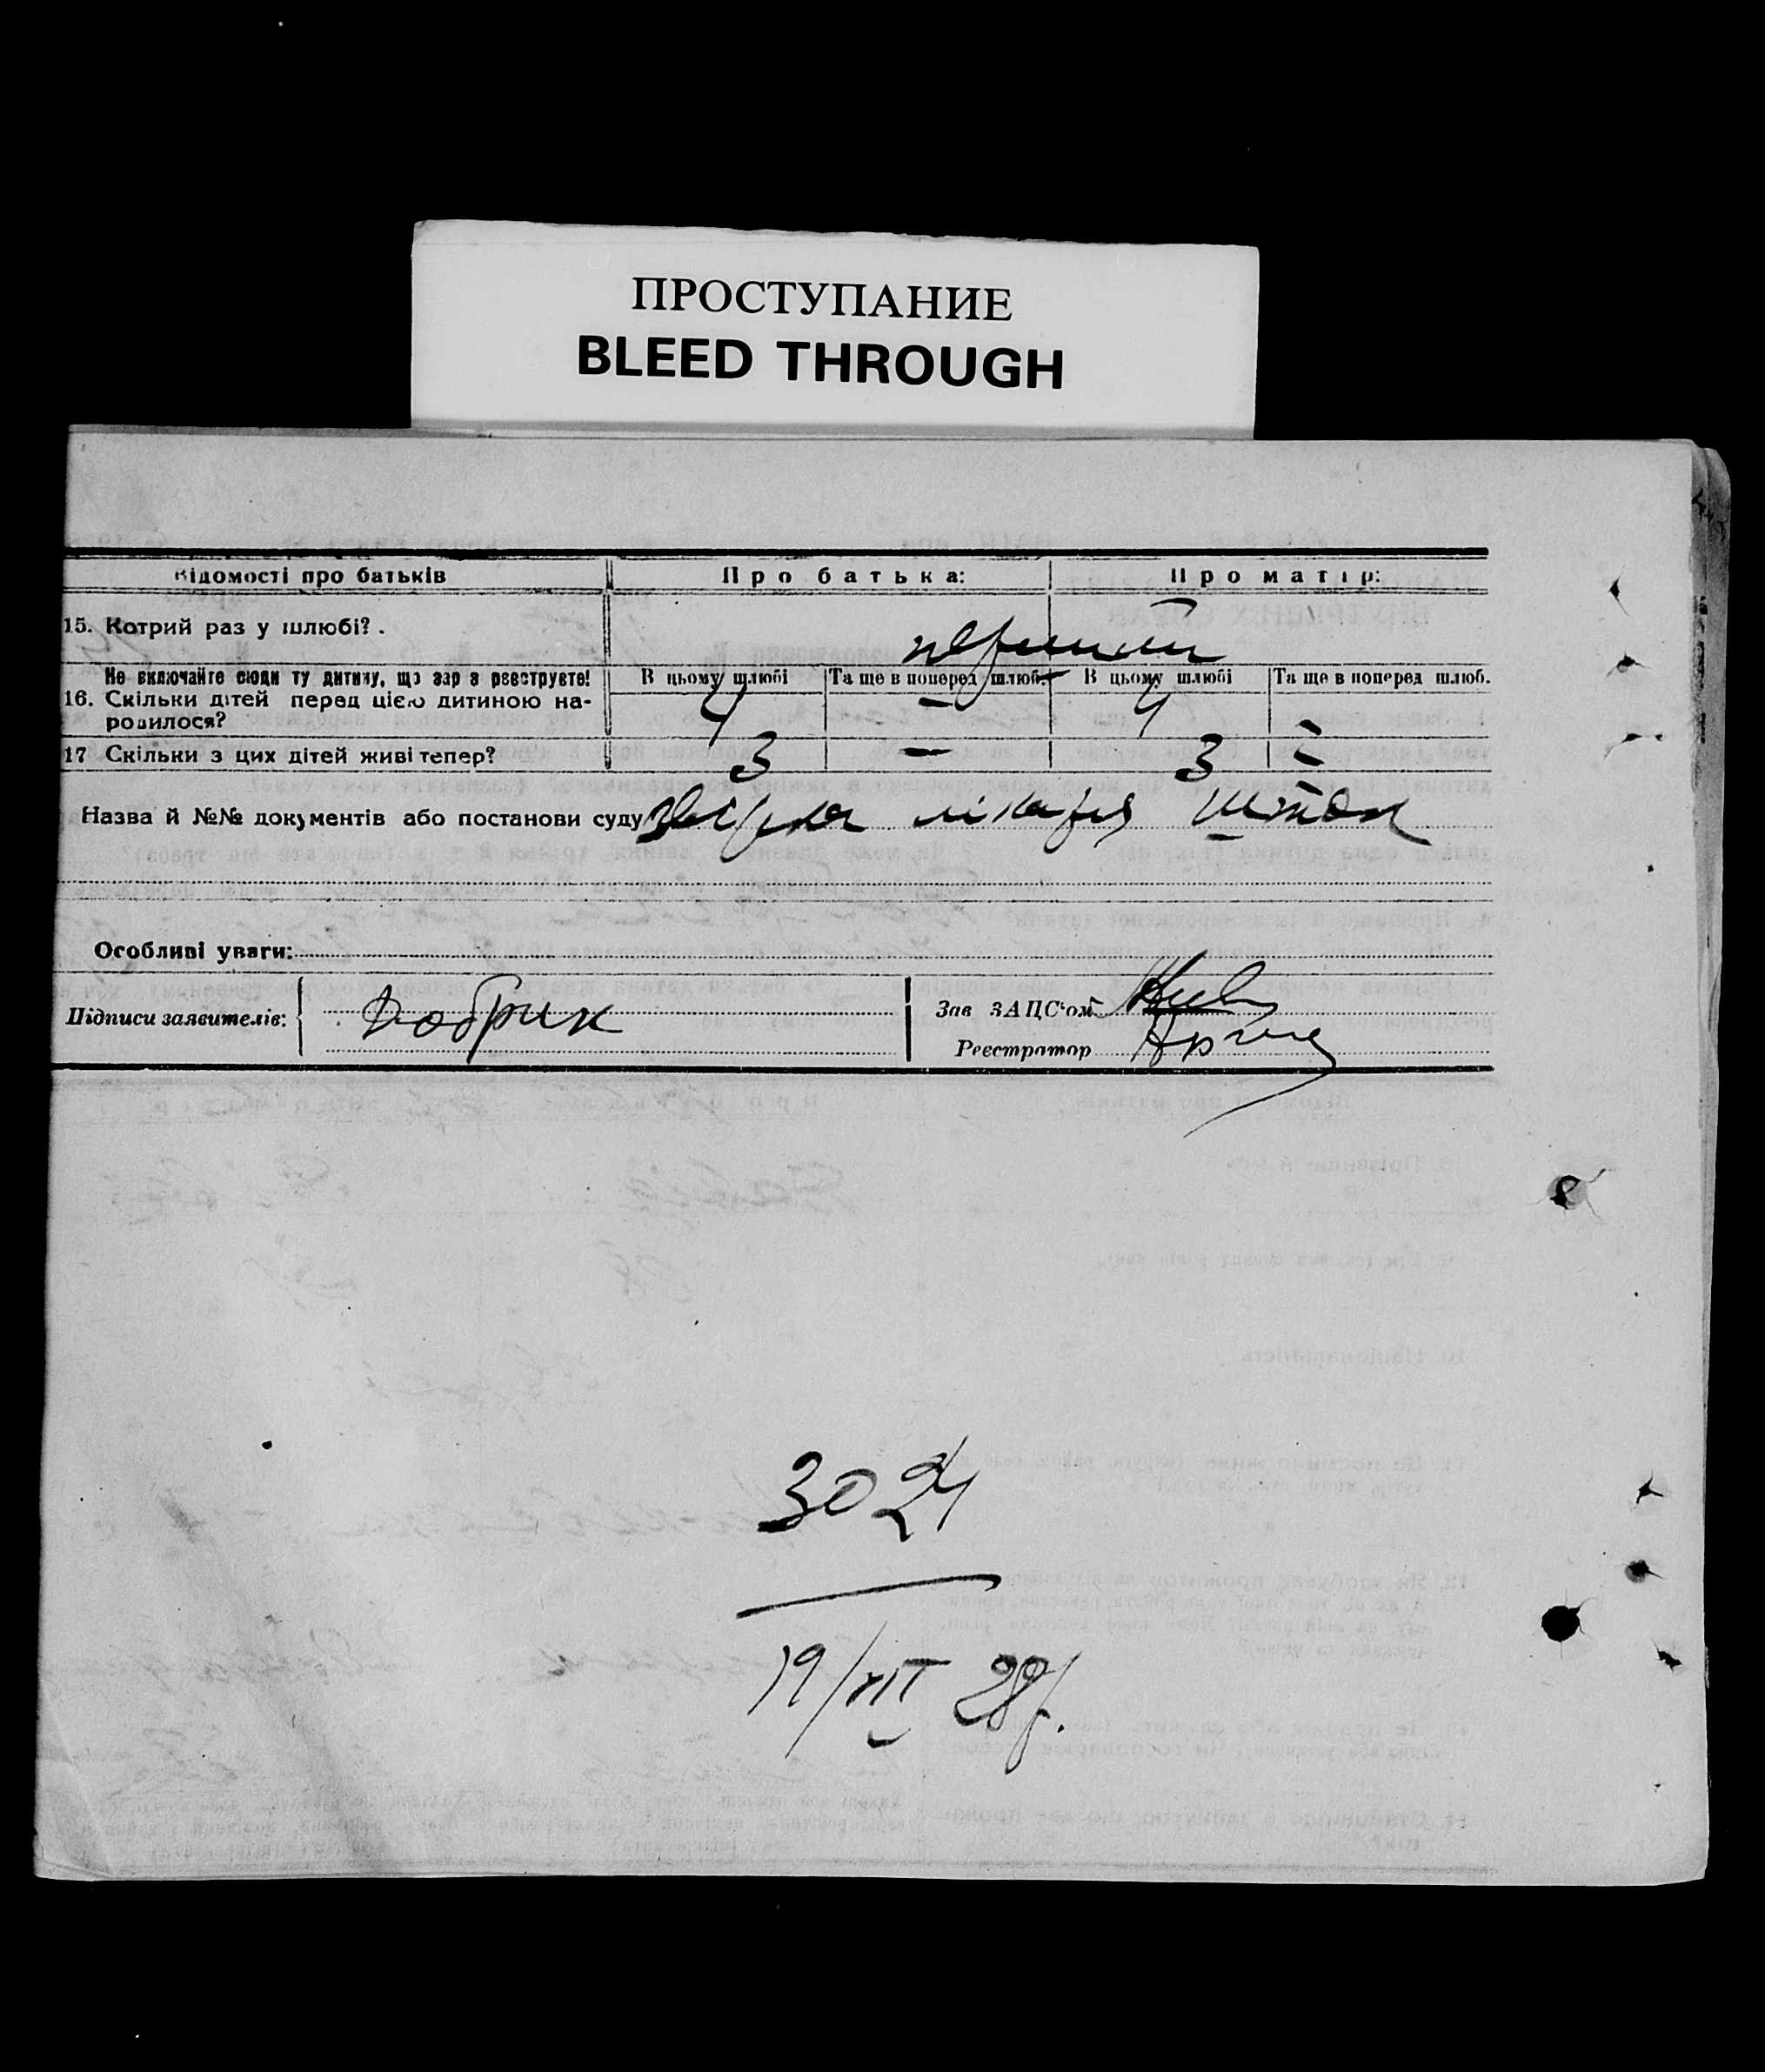 ПРОСТУПАНИЕ
BLEED THROUGH
Відомості про батьків
Про батька:
Про матір:
15. Котрий раз у шлюбі?.
перший
Не включайте сюди ту дитину, що зараз реєструєте!
В цьому шлюбі
Та ще в поперед шлюб.
В цьому шлюбі
Та ще в поперед шлюб.
16. Скільки дітей перед цією дитиною на-
родилося?
4
–
4
–
17 Скільки з цих дітей живі тепер?
3
–
3
–
Назва й №№ документів або постанови суду
лікаря
Особливі уваги:
Підписи заявителів:
Добрик
Зав ЗАПС'ом
Реєстратор
3024
19/XII 28р.